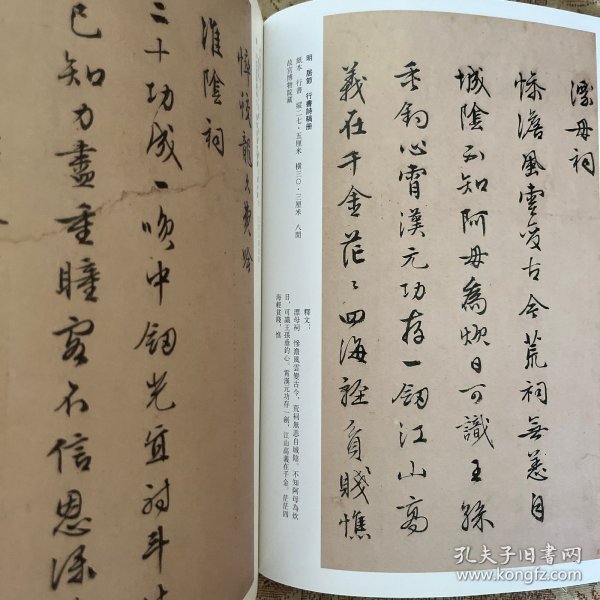 漂母祠
惨澹風雲變古今荒祠無恙自
城陰不知阿母為炊日可識王孫
垂釣心霄漢元功存一劍江山高
義在千金茫々四海輕貧賤憔
明 居節 行書詩稿册
紙本 行書 縱二七·五厘米 橫三〇·三厘米 八開
故宫博物院藏
釋文：
漂母祠 慘澹風雲變古今，荒祠無恙自城陰。不知阿母為炊
日，可識王孫垂釣心。霄漢元功存一劍，江山高義在千金。茫茫四
海輕貧賤，憔
淮陰祠
二十功成一唤中劍光宜射斗
已知力盡重瞳客不信恩深
孔夫子旧書网
www.kongfz.com